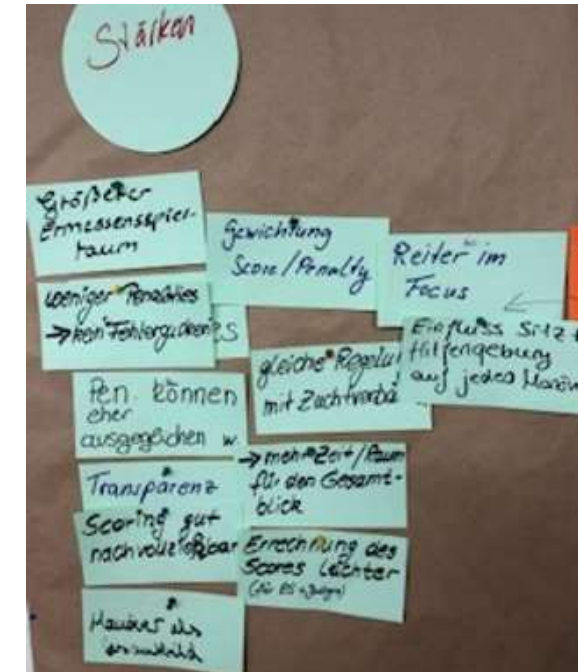 Stärken
Größerer
Ermessensspiel-
raum
weniger Penalties
→ kein Fehlergucken
Pen. können
eher
ausgeglichen w.
Transparenz
Scoring gut
nachvollziehbar
Manöver als
Gewichtung
Score/Penalty
gleiche Regelu
mit Zuchtverbä
→ mehr Zeit/Raum
für den Gesamt-
blick
Errechnung des
Scores leichter
Reiter im
Focus
Einfluss Sitz +
Hilfengebung
auf jedes Manöv